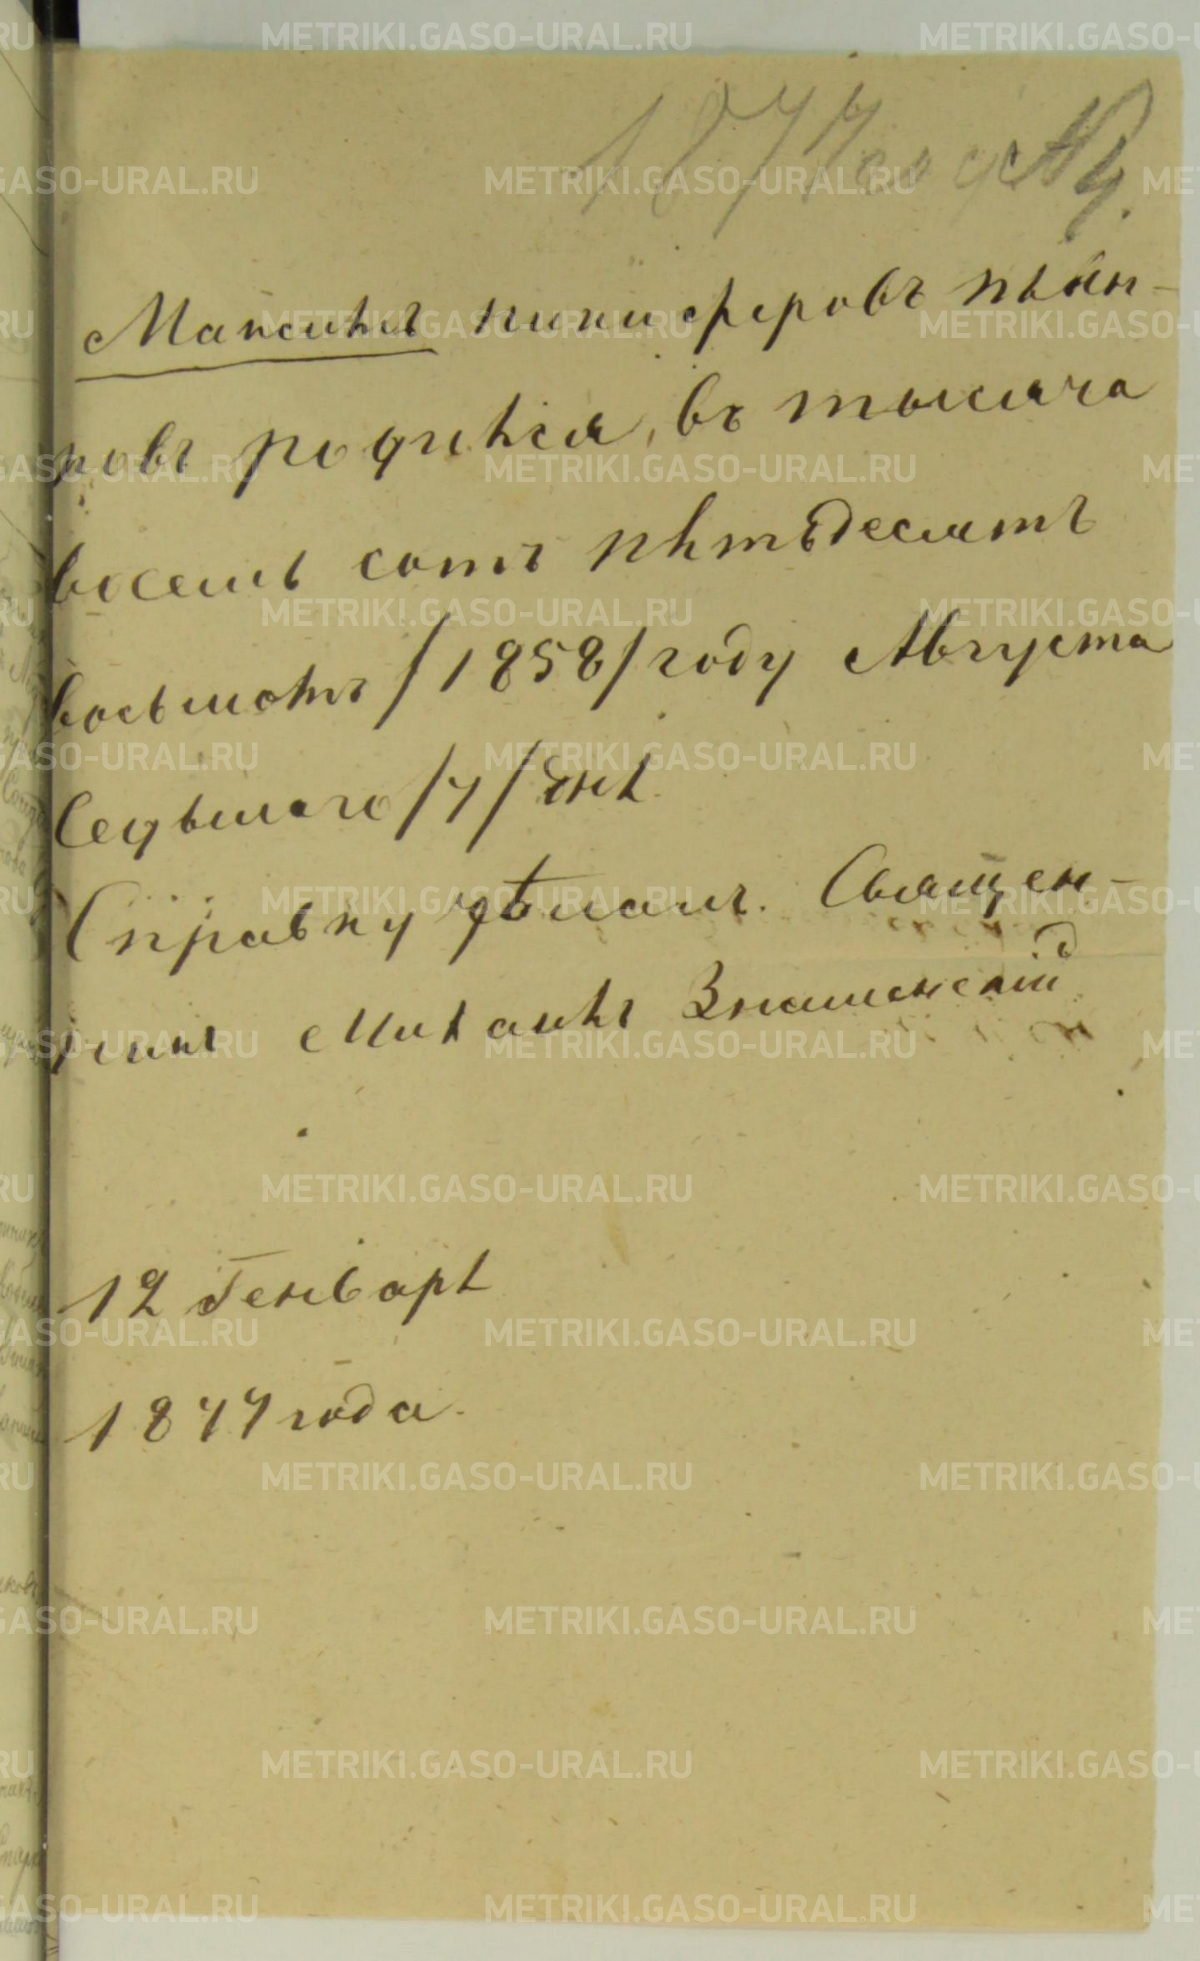 1877 года № 4.
Максимъ никифоровъ пьян-
ковъ родился, въ тысяча
восемь сотъ пятьдесятъ
восьмомъ /1858/ году Августа
Седьмаго /7/ дня.
Справку дѣлалъ. Священ-
никъ Михаилъ Знаменскій
12 Генваря
1877 года.